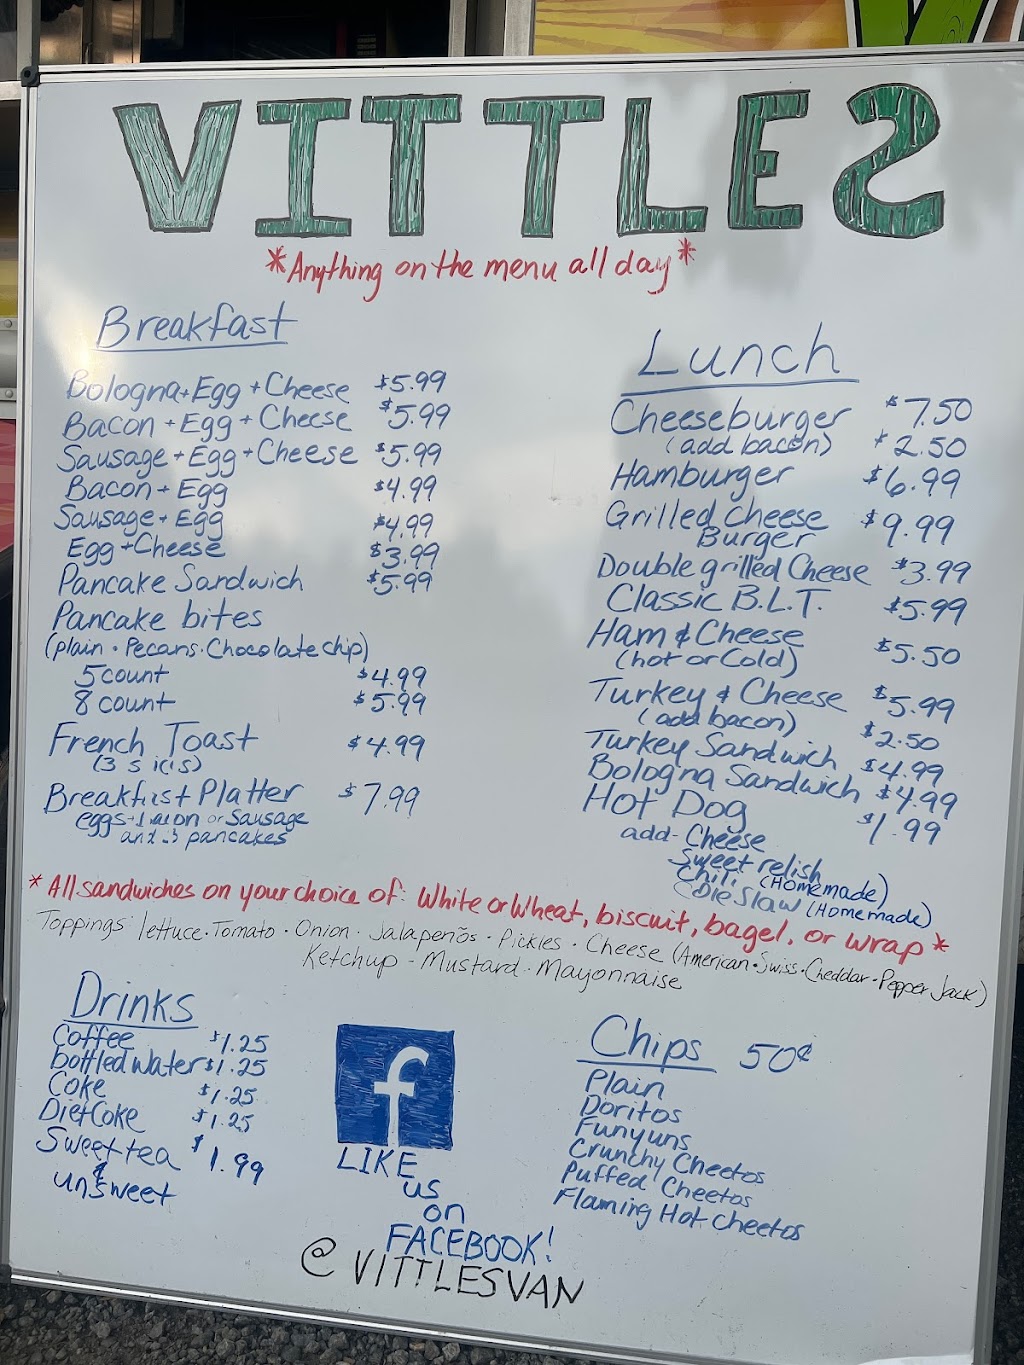 VITTLES
*Anything on the menu all day*
Breakfast
Bologna+Egg+Cheese $5.99
Bacon+Egg+Cheese $5.99
Sausage+Egg+Cheese $5.99
Bacon+Egg $4.99
Sausage+Egg $4.99
Egg+Cheese $3.99
Pancake Sandwich $5.99
Pancake bites
(plain · Pecans · Chocolate chip)
5 count $4.99
8 count $5.99
French Toast $4.99
Breakfast Platter $7.99
eggs + or Sausage
pancakes
Lunch
Cheeseburger $7.50
(add bacon) $2.50
Hamburger $6.99
Grilled Cheese $9.99
Burger
Double grilled Cheese $3.99
Classic B.L.T. $5.99
Ham & Cheese $5.50
(hot or Cold)
Turkey & Cheese $5.99
(add bacon) $2.50
Turkey Sandwich $4.99
Bologna Sandwich $4.99
Hot Dog $1.99
add- Cheese
Sweet relish
Chili (Homemade)
Slaw (Homemade)
*All sandwiches on your choice of: White or Wheat, biscuit, bagel, or wrap*
Toppings: lettuce · Tomato · Onion · Jalapeños · Pickles · Cheese (American · Swiss · Cheddar · Pepper Jack)
Ketchup - Mustard · Mayonnaise
Drinks
Coffee $1.25
bottled water $1.25
Coke $1.25
Diet Coke $1.25
Sweet tea $1.99
&
unsweet
f
LIKE
us
on
FACEBOOK!
@VITTLESVAN
Chips 50¢
Plain
Doritos
Funyuns
Crunchy Cheetos
Puffed Cheetos
Flaming Hot Cheetos